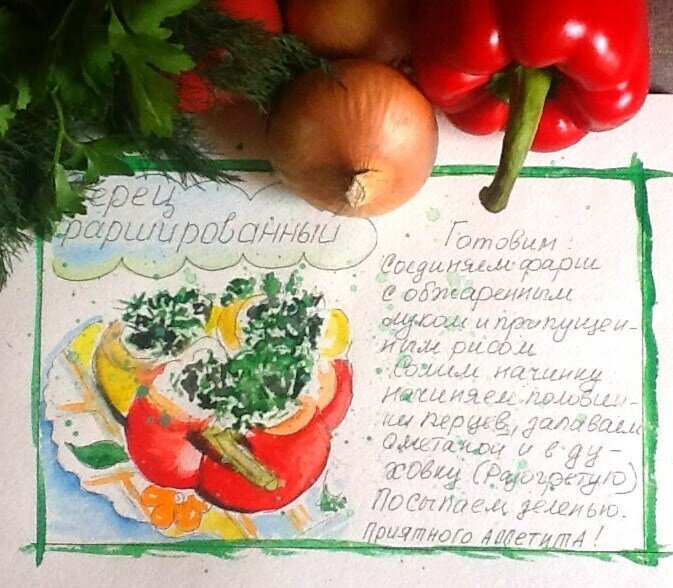 ерец
фаршированный
Готовим:
Соединяем фарш
с обжаренным
луком и припущен-
ным рисом
Солим начинку
начиняем половин-
ки перцев, заливаем
сметаной и в ду-
ховку (Разогретую)
Посыпаем зеленью.
Приятного Аппетита!